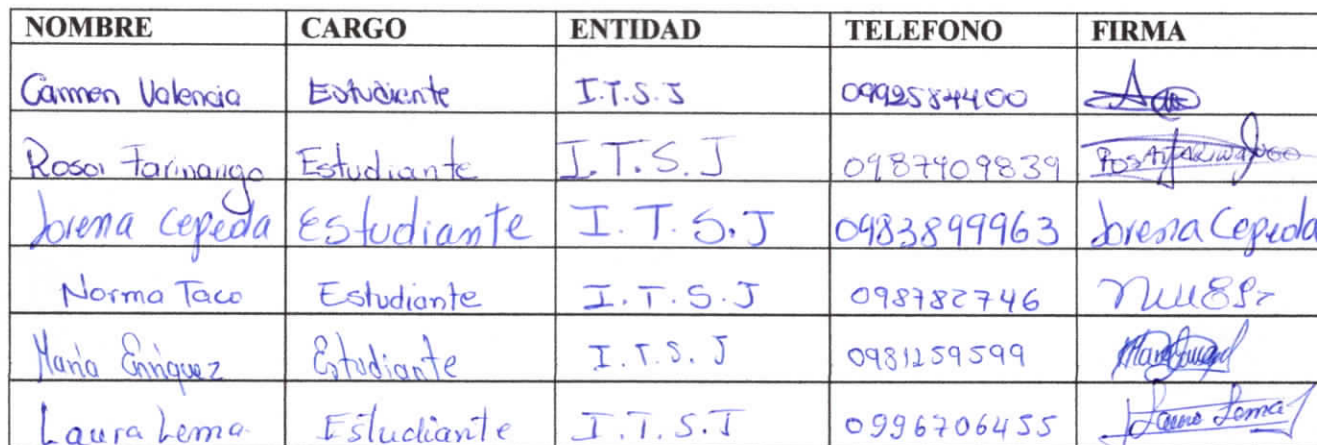 NOMBRE CARGO ENTIDAD TELEFONO FIRMA
Carmen Valencia Estudiante I.T.S.J 0992584400
Rosa Farinango Estudiante I.T.S.J 0987409839
Lorena Cepeda Estudiante I.T.S.J 0983899963 Lorena Cepeda
Norma Taco Estudiante I.T.S.J 098782746
Maria Enriquez Estudiante I.T.S.J 0981259599
Laura Lema Estudiante I.T.S.J 0996706455 Laura Lema